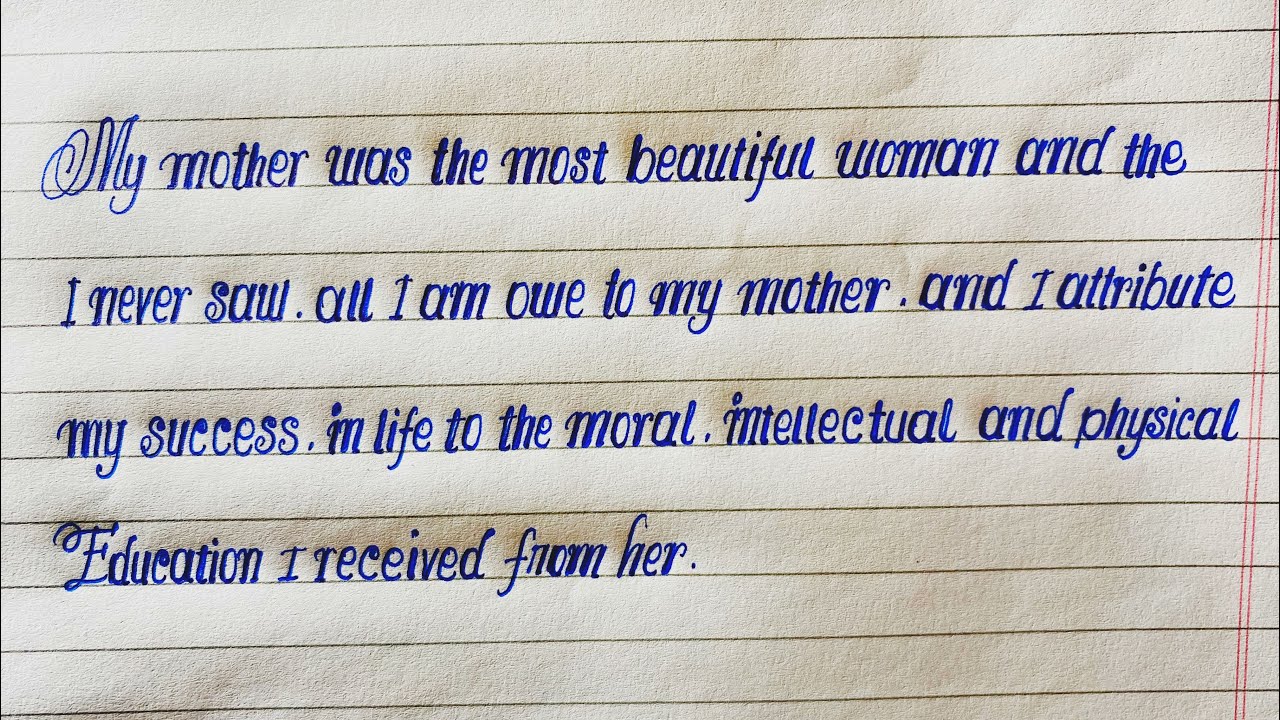 My mother was the most beautiful woman and the
I never saw. all I am owe to my mother. and I attribute
my success. in life to the moral. intellectual and physical
Education I received from her.